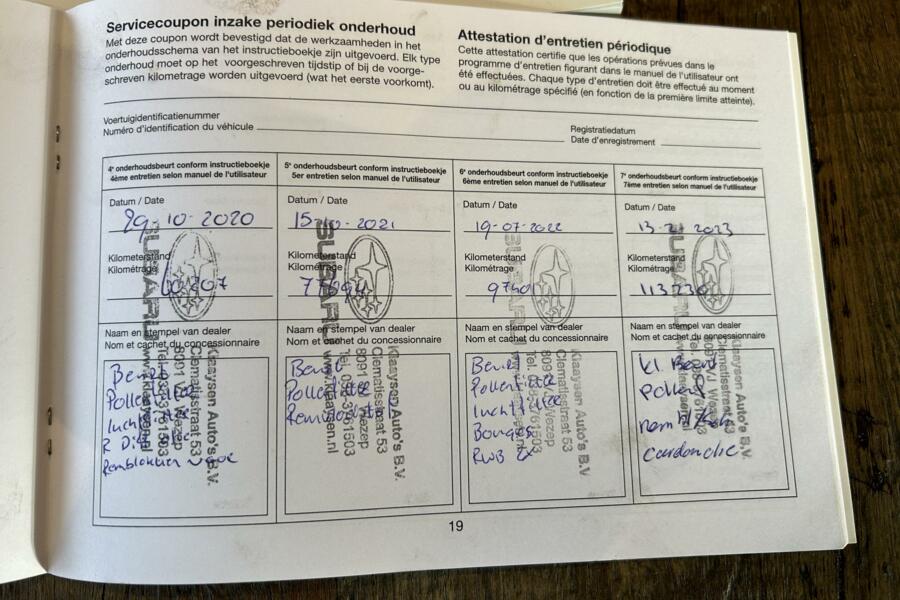 Servicecoupon inzake periodiek onderhoud
Met deze coupon wordt bevestigd dat de werkzaamheden in het
onderhoudsschema van het instructieboekje zijn uitgevoerd. Elk type
onderhoud moet op het voorgeschreven tijdstip of bij de voorge-
schreven kilometrage worden uitgevoerd (wat het eerste voorkomt).
Attestation d'entretien périodique
Cette attestation certifie que les opérations prévues dans le
programme d'entretien figurant dans le manuel de l'utilisateur ont
été effectuées. Chaque type d'entretien doit être effectué au moment
ou au kilométrage spécifié (en fonction de la première limite atteinte).
Voertuigidentificatienummer
Numéro d'identification du véhicule
Registratiedatum
Date d'enregistrement
4e onderhoudsbeurt conform instructieboekje
4ème entretien selon manuel de l'utilisateur
Datum / Date
29-10-2020
Kilometerstand
Kilométrage
Naam en stempel van dealer
Nom et cachet du concessionnaire
Remblokken
SUBARU
Klaaysen Auto's B.V.
Clematisstraat 53
8091 VJ Wezep
Tel. 038-3761503
www.klaaysen.nl
5e onderhoudsbeurt conform instructieboekje
5er entretien selon manuel de l'utilisateur
Datum / Date
15-10-2021
Kilometerstand
Kilométrage
Naam en stempel van dealer
Nom et cachet du concessionnaire
SUBARU
Klaaysen Auto's B.V.
Clematisstraat 53
8091 VJ Wezep
Tel. 038-3761503
www.klaaysen.nl
6e onderhoudsbeurt conform instructieboekje
6ème entretien selon manuel de l'utilisateur
Datum / Date
19-07-2022
Kilometerstand
Kilométrage
Naam en stempel van dealer
Nom et cachet du concessionnaire
Bougies
RWB 2x
SUBARU
Klaaysen Auto's B.V.
Clematisstraat 53
8091 VJ Wezep
Tel. 038-3761503
7e onderhoudsbeurt conform instructieboekje
7ème entretien selon manuel de l'utilisateur
Datum / Date
2023
Kilometerstand
Kilométrage
113230
Naam en stempel van dealer
Nom et cachet du concessionnaire
Kl. Beurt
SUBARU
Klaaysen Auto's B.V.
Clematisstraat 53
8091 VJ Wezep
19